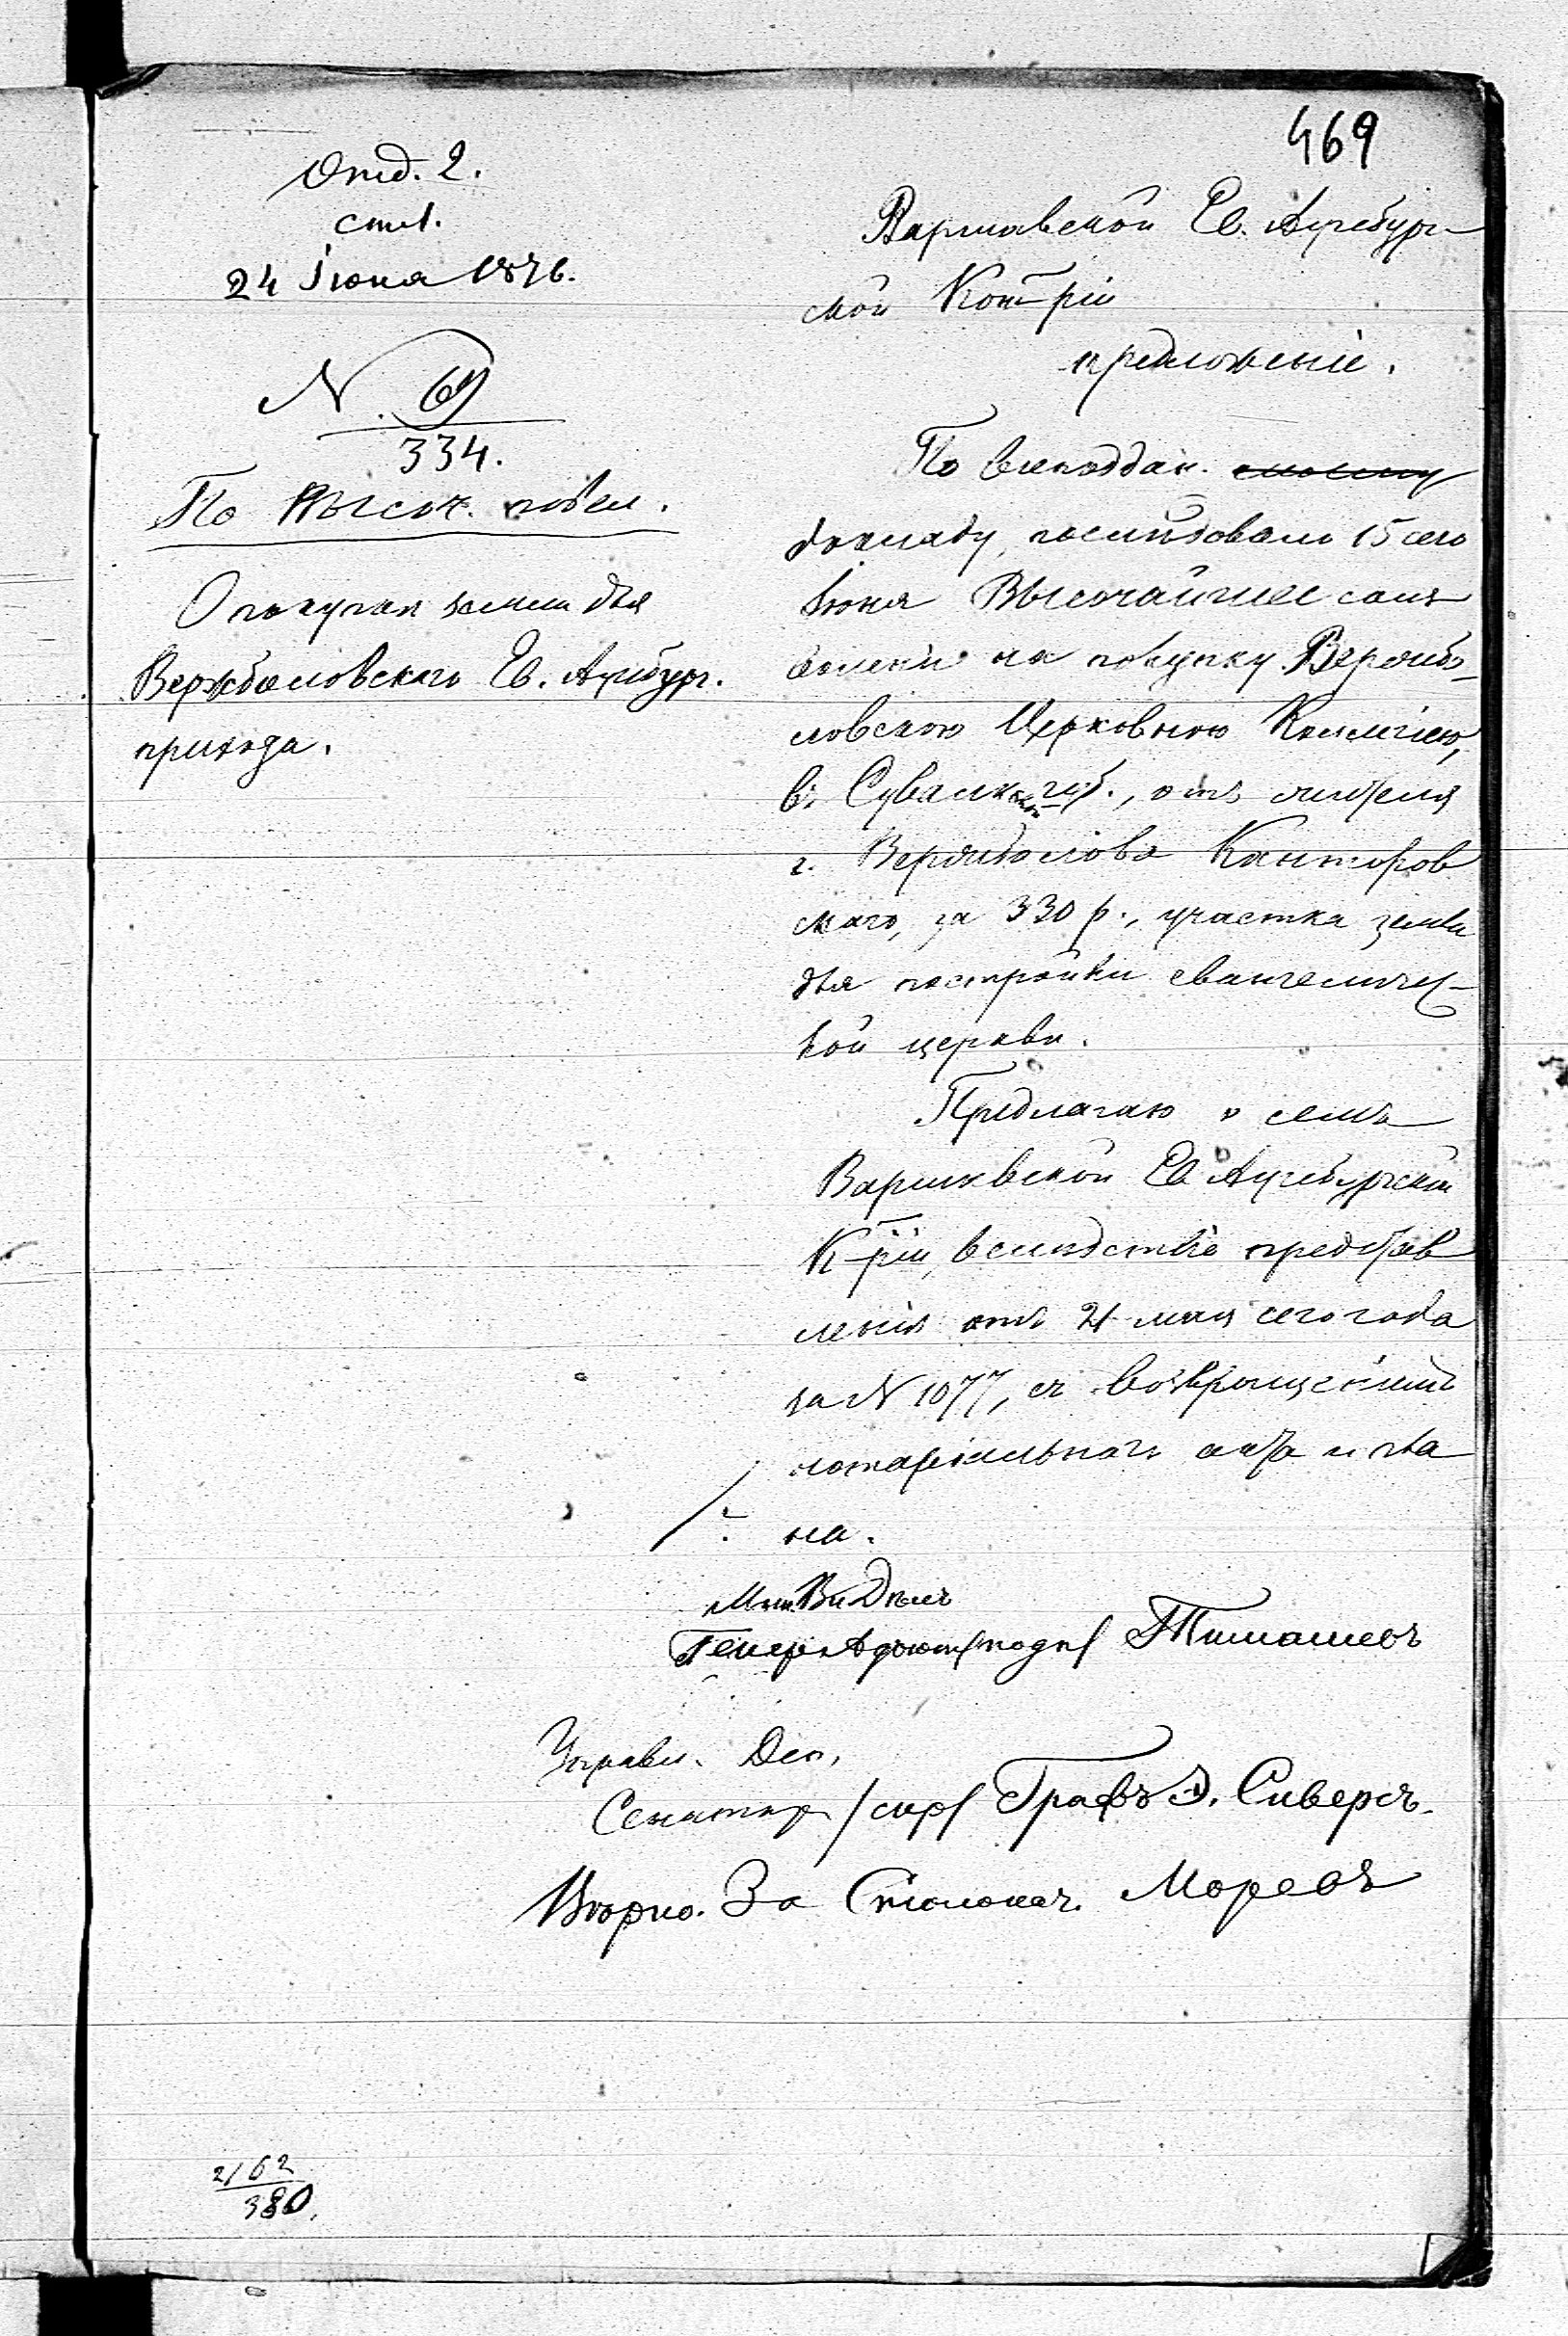 469
Отд. 2.
ст 1.
24 Іюня 1876.
N. 69
334.
По Высоч. повел.
О покупкѣ земли для
Вержболовскаго Ев. Аугсбург.
прихода.
Варшавской Ев. Аугсбург-
ской Конс-ріи
предложеніе.
По всеподдан.
докладу, послѣдовало 15 сего
Іюня Высочайшее соиз
воленіе на покупку Вержбо-
ловскою Церковною Коллегіею,
въ Сувалкской губ., отъ жителя
г. Вержболова Канторов
скаго, за 330 р., участка земли
для постройки евангеличес-
кой церкви.
Предлагаю о семъ
Варшавской Ев. Аугсбургской
К-ріи, вслѣдствіе представ
ленія отъ 21 мая сего года
за N 1077, съ возвращеніемъ
нотаріальнаго акта и пла
на.
Мин. Вн. Дѣлъ
Генер. Адъют. /подп/ Тимашевъ
Управл. Деп.
Сенаторъ /скр/ Графъ Э. Сиверсъ.
Вѣрно. За Столонач. Моревъ
2/62
380.